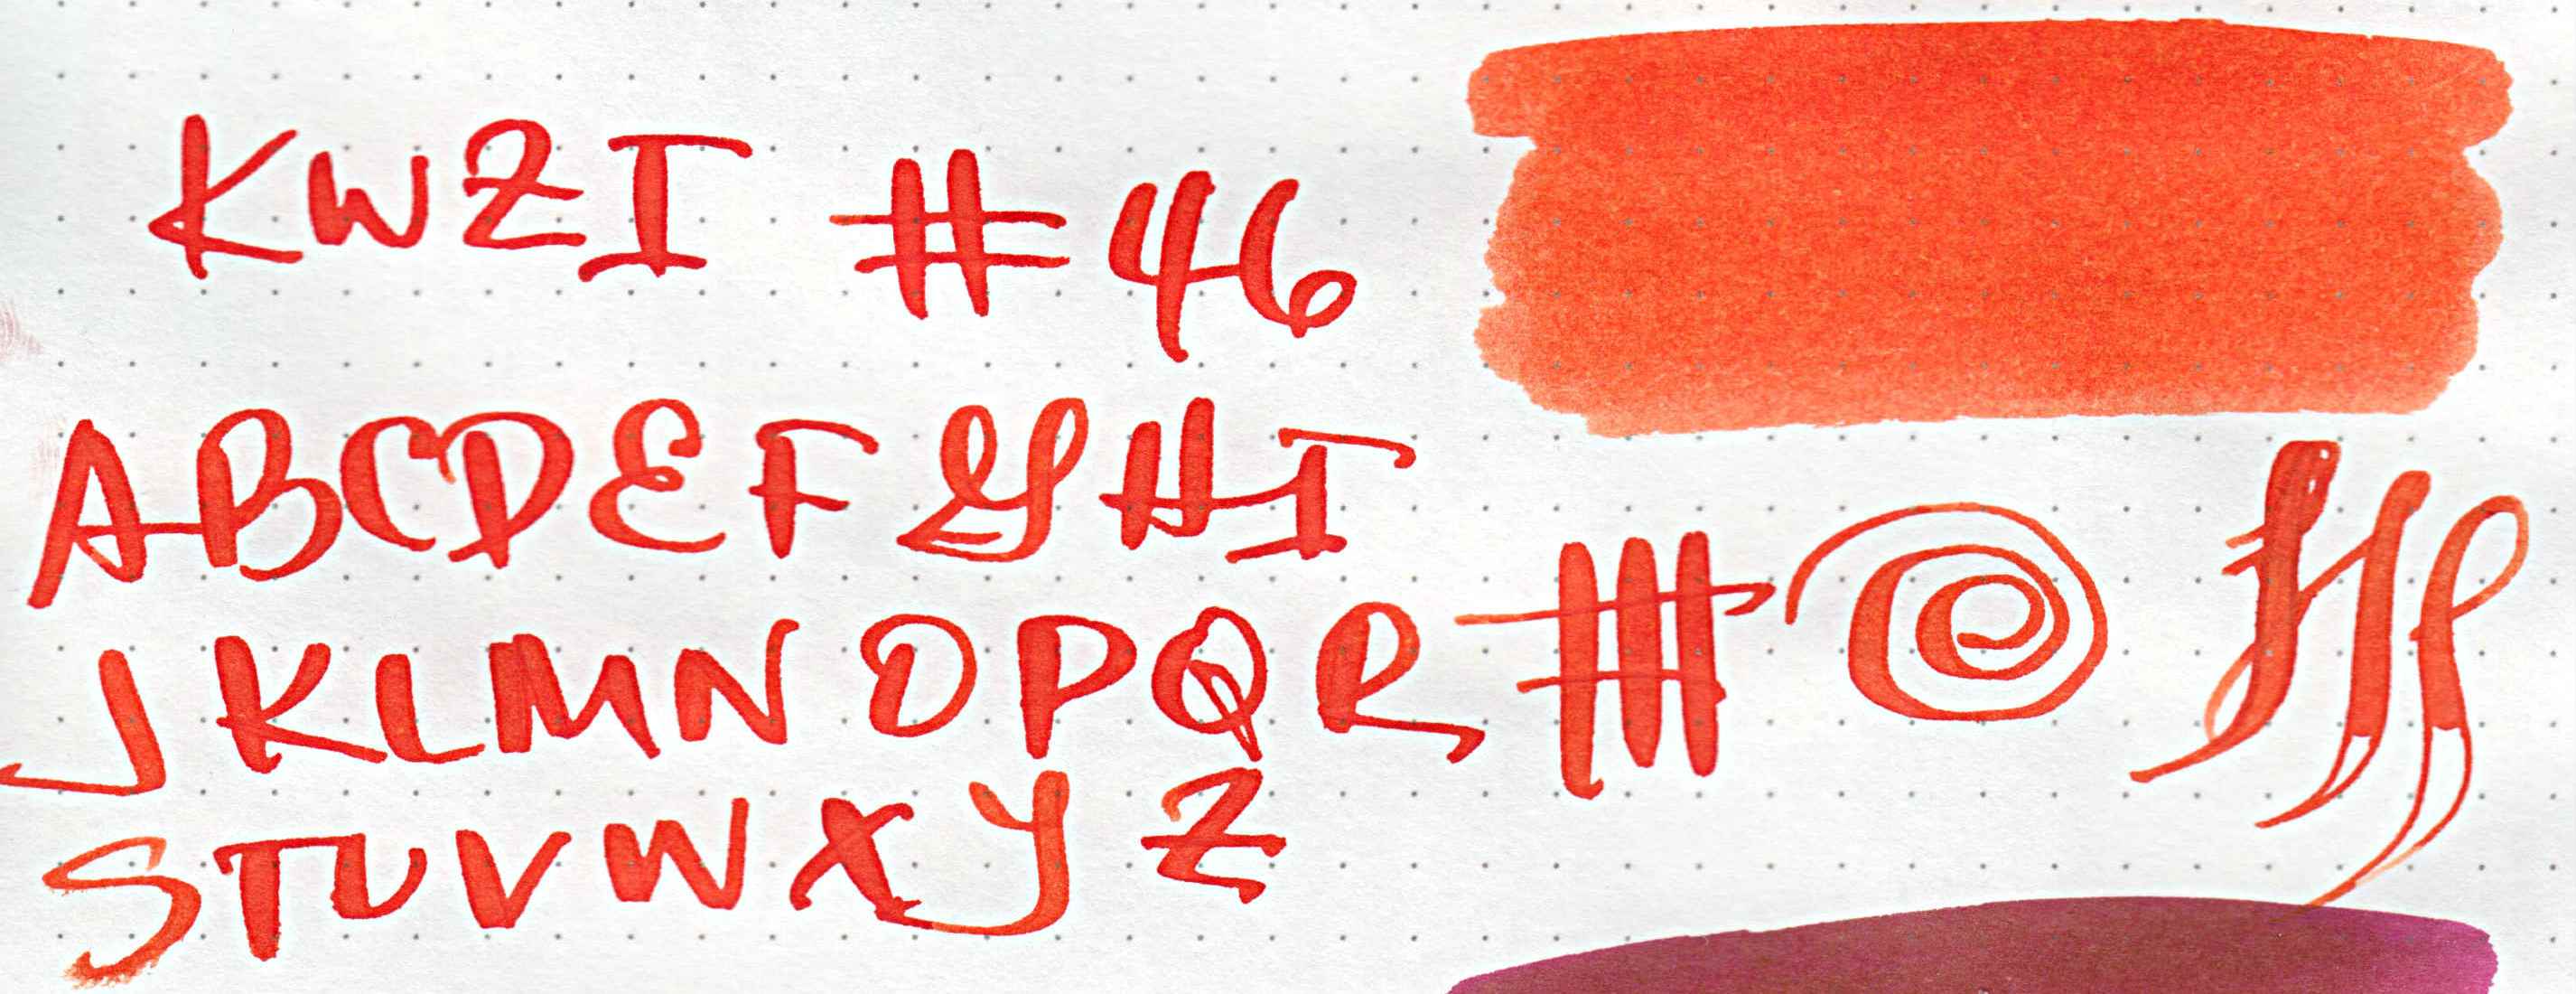 KWZI #46
ABCDEFGHI
JKLMNOPQR
STUVWXYZ